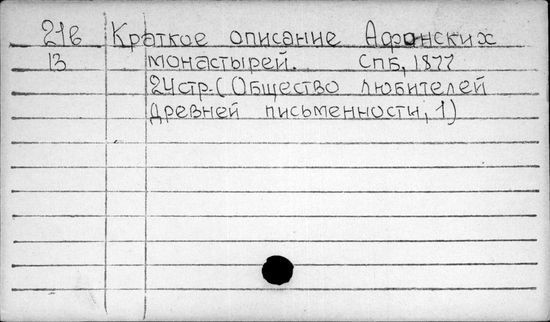 21в Краткое описание Афонских
13 монастырей. СПБ, 1877
24стр. (Общество любителей
древней письменности, 1)